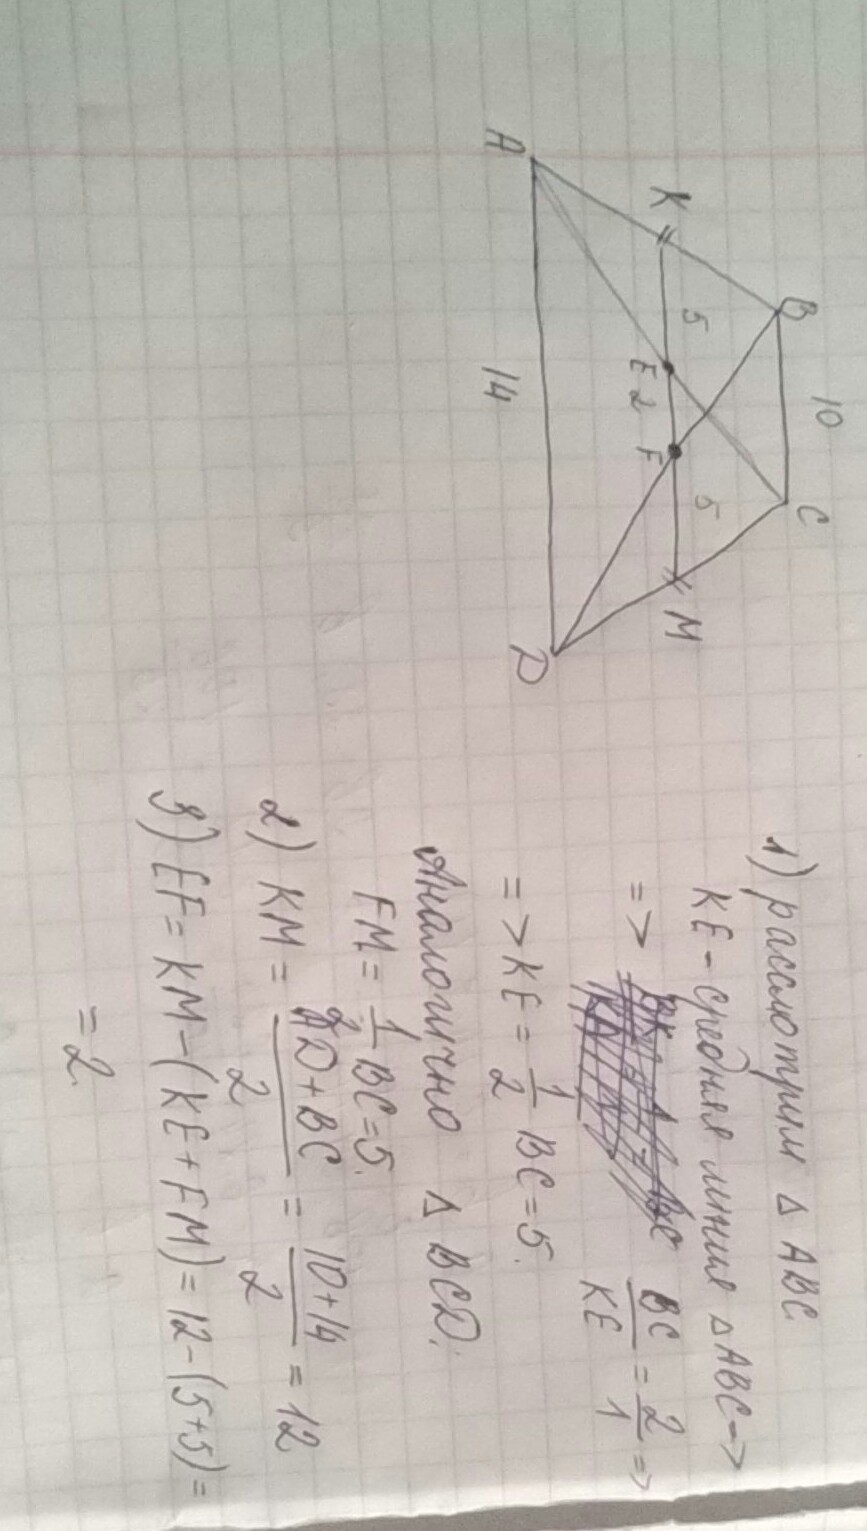 B 10 C
K 5 E 2 F 5 M
A 14 D
1) рассмотрим △ ABC
KE - средняя линия △ ABC =>
=> BC/KE = 2/1 =>
=> KE = 1/2 BC = 5.
Аналогично △ BCD:
FM = 1/2 BC = 5.
2) KM = AD+BC/2 = 10+14/2 = 12
3) EF = KM - (KE + FM) = 12 - (5+5) =
= 2.